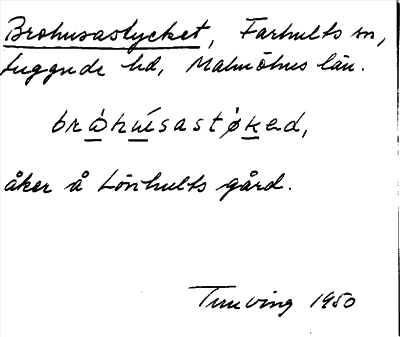 Brohusastycket, Farhults sn,
Luggude hd, Malmöhus län.
bròhu̇́sastøked,
åker å Lönhults gård.
Tuneving 1950